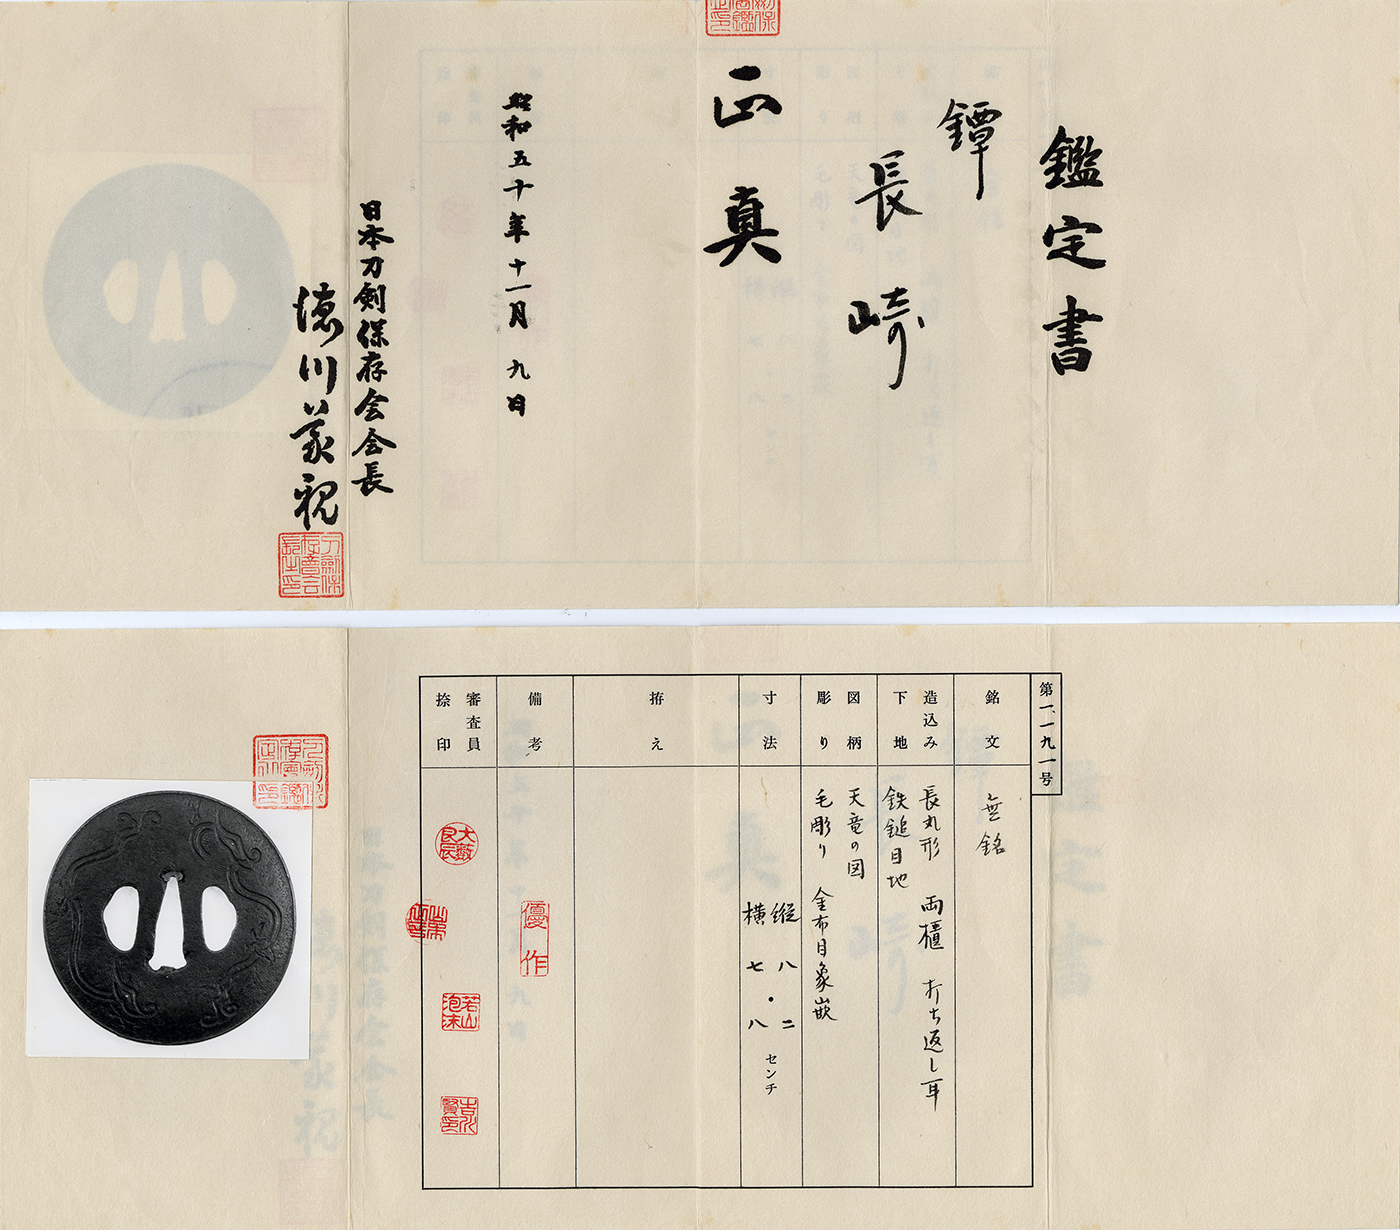 鑑定書
鐔
長崎
正真
昭和五十年十一月九日
日本刀剣保存会会長
徳川義親
第一、一九一号
銘文
無銘
造込み
下地
長丸形 両櫃 打ち返し耳
鉄鎚目地
図柄
彫り
天竜の図
毛彫り 金布目象嵌
寸法
縦 八・二
横 七・八
センチ
拵え
備考
優作
審査員
捺印